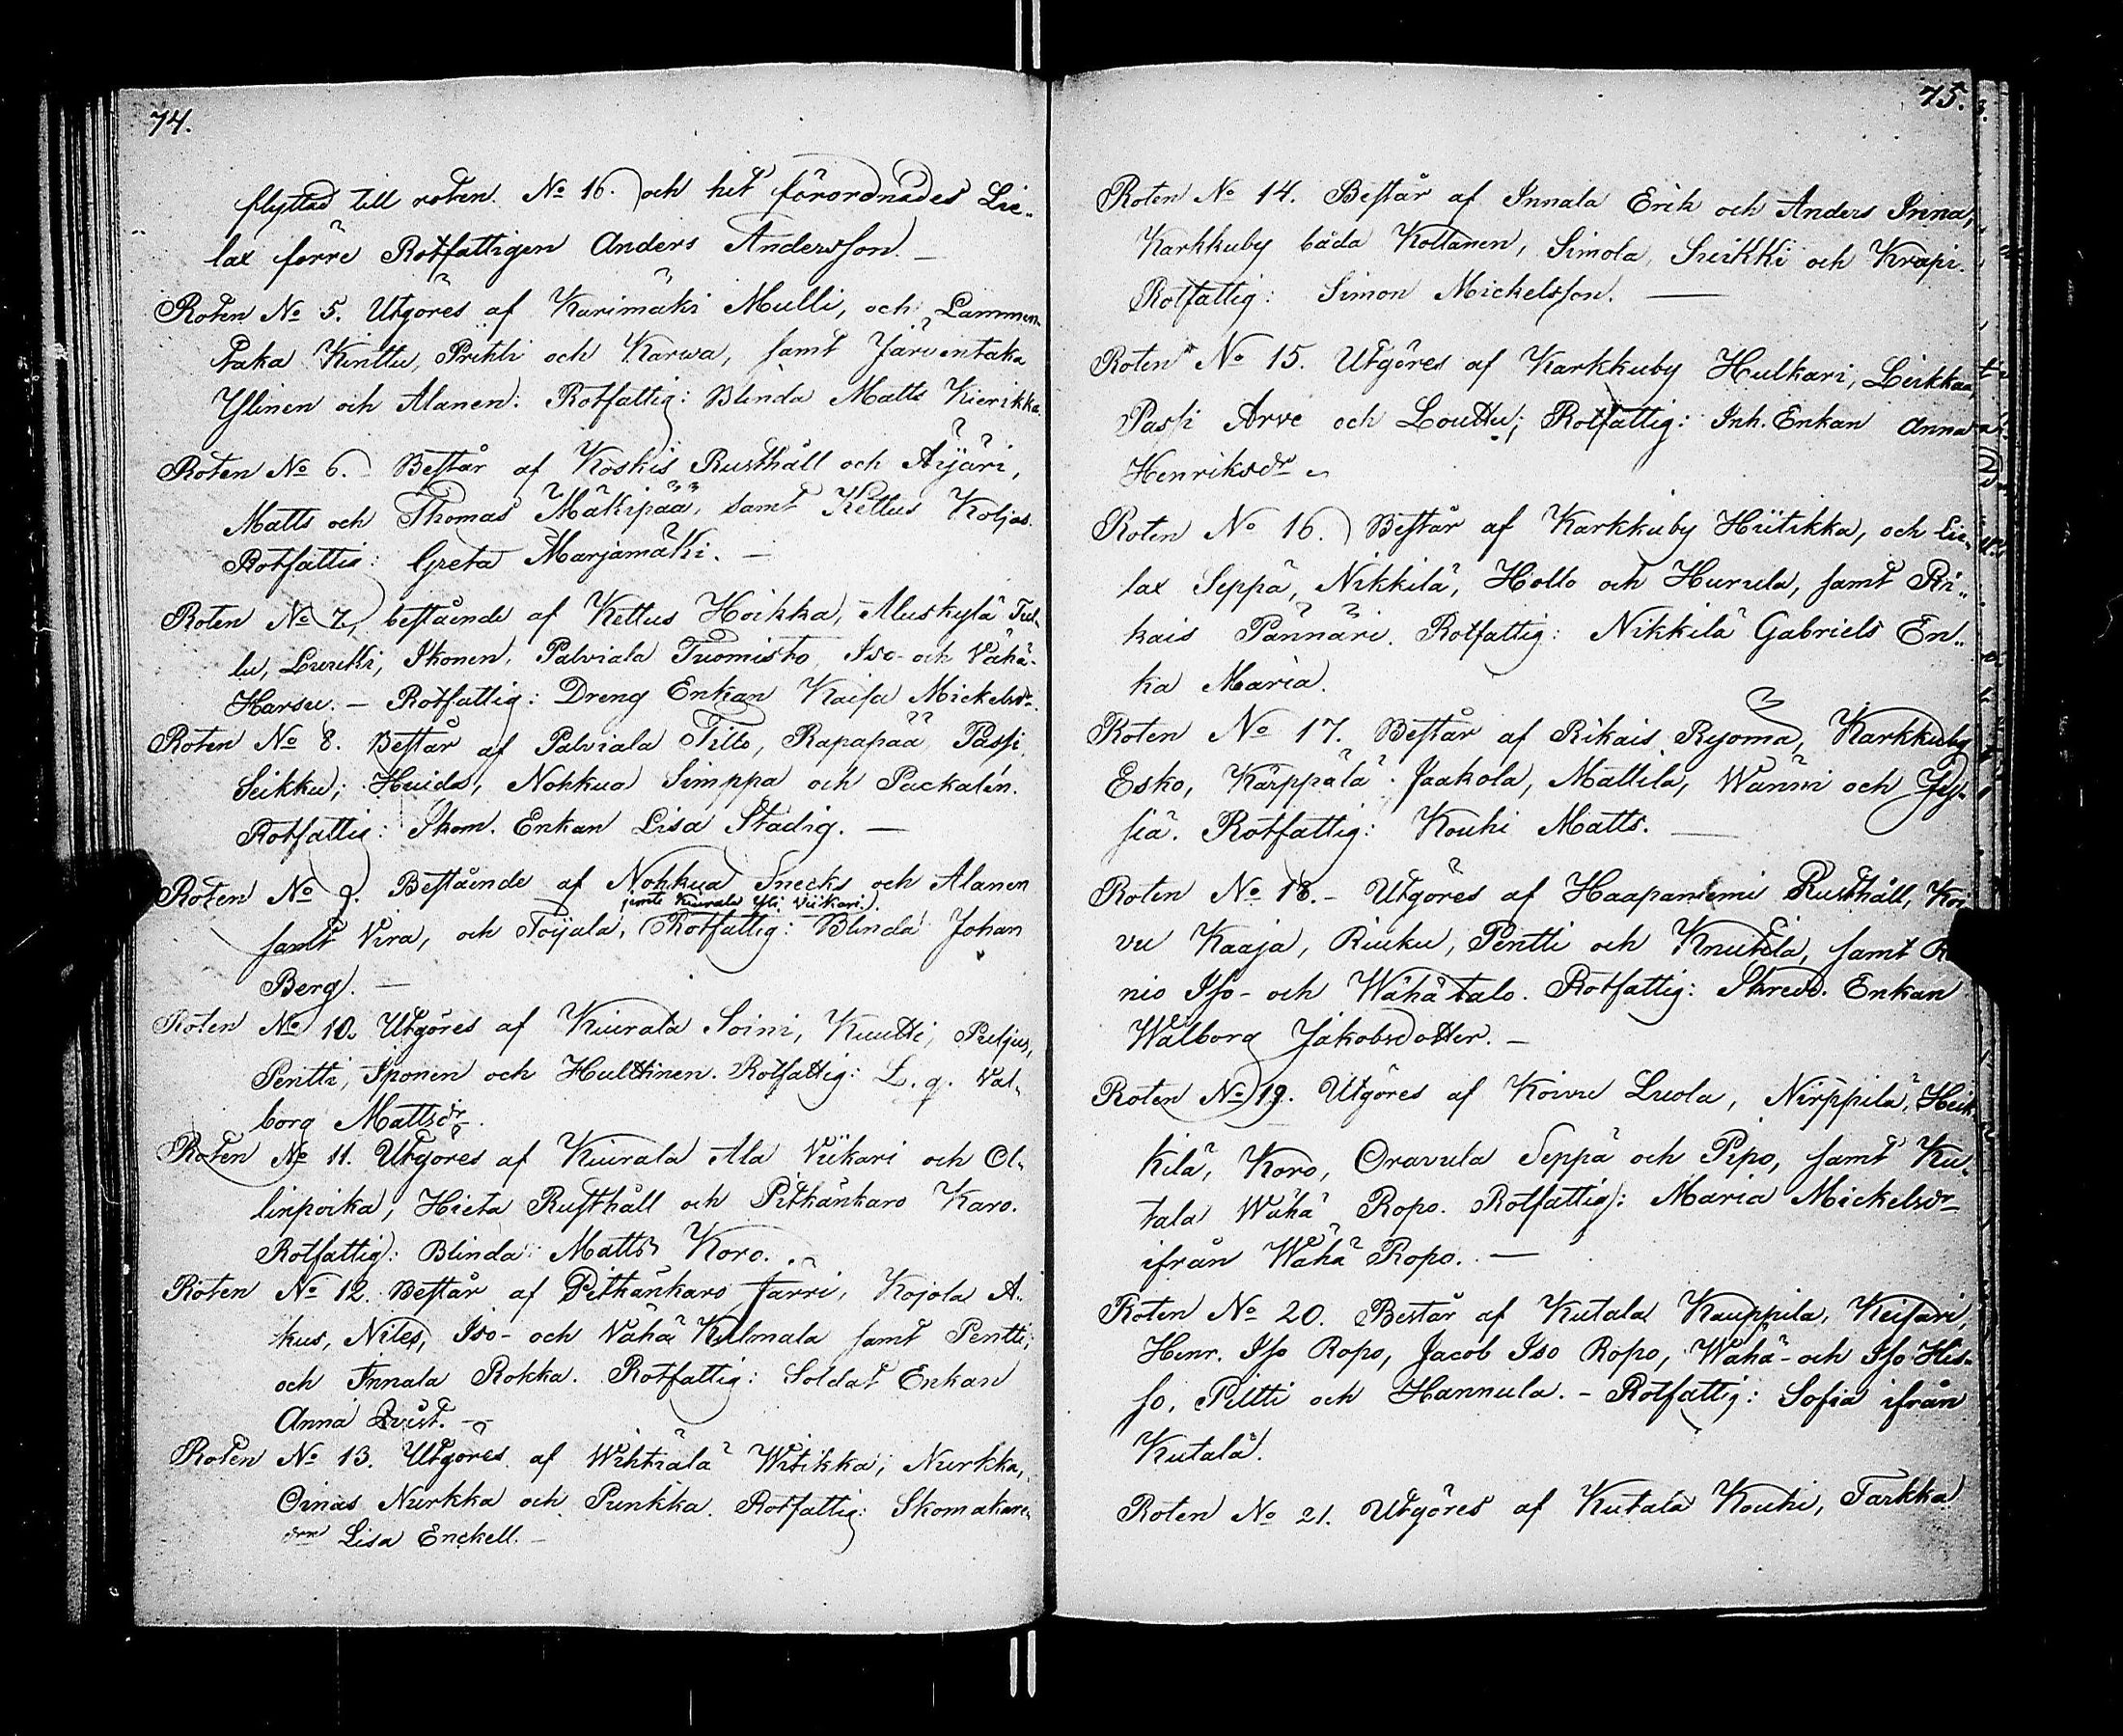 74.
flyttad till roten. No 16. och het förordnades Lie-
lax förre Rotfattigen Anders Andersson. —
Roten No 5. Utgöres af Karimäki Mulli, och Lammen-
taka Kinttu, Prihti och Karwa, samt Järventaka
Ylinen och Alanen. Rotfattig: Blinda Matts Kierikka.
Roten No 6. Består af Koskis Rusthåll och Äijäri,
Matts och Thomas Mäkipää, samt Kettus Koljos.
Rotfattig: Greta Marjamäki. —
Roten No 7, bestående af Kettus Hoikka, Aluskylä Tul-
lu, Luuki, Ikonen, Palviala Tuomisto, Iso- och Vähä-
Harsu. — Rotfattig: Dreng Enkan Kaisa Mickelsdr.
Roten No 8. Består af Palviala Tillo, Rapapää Passi,
Seikku; Huida, Nohkua Simppa och Packalén.
Rotfattig: Skom. Enkan Lisa Stadig. —
Roten No 9. Bestående af Nohkua Snecks och Alanen
jemte Kiurala Yli Viikari).
samt Vira, och Töijala, Rotfattig: Blinda Johan
Berg. —
Roten No 10. Utgöres af Kiurala Soini, Kuutti, Putjus,
Pentti, Iponen och Hulttinen. Rotfattig: L. q. Val-
borg Mattsdr.
Roten No 11. Utgöres af Kiurala Ala Viikari och Ol-
linpoika, Hieta Rusthåll och Pitkänkaro Karo.
Rotfattig: Blinda Matts Koro.
Roten No 12. Består af Pitkänkaro Järri, Kojola A-
kus, Niles, Iso- och Vähä Kulmala samt Pentti,
och Innala Rokka. Rotfattig: Soldat Enkan
Anna Qvist. —
Roten No 13. Utgöres af Wihtiälä Witikka, Nurkka,
Oinas Nurkka och Punkka. Rotfattig: Skomakare-
drn Lisa Enckell. —
75.
Roten No 14. Består af Innala Erik och Anders Inna,
Karkkuby båda Kottanen, Simola, Sviikki och Krapi.
Rotfattig: Simon Mickelsson. —
Roten No 15. Utgöres af Karkkuby Hulkari, Leikkaa,
Passi Arve och Louttu; Rotfattig: Inh. Enkan Anna
Henriksdr
Roten No 16. Består af Karkkuby Hiitikka, och Lie-
lax Seppä, Nikkilä, Hollo och Hurula, samt Ri-
kais Pännäri. Rotfattig: Nikkilä Gabriels En-
ka Maria.
Roten No 17. Består af Rikais Ryömä, Karkkuby
Esko, Kärppälä Jaakola, Mattila, Wänni och Jy-
siä. Rotfattig: Kouhi Matts. —
Roten No 18. — Utgöres af Haapaniemi Rusthåll, Koi
vu Kaaja, Riuku, Pentti och Knutila, samt
nio Iso- och Wähätalo. Rotfattig: Skredd. Enkan
Walborg Jakobsdotter. —
Roten No 19. Utgöres af Koivu Luola, Nirppilä, Heik-
kilä, Koro, Oravula Seppä och Pipo, samt Ku-
tala Wähä Ropo. Rotfattig: Maria Mickelsdr
ifrån Wähä Ropo. —
Roten No 20. Består af Kutala Kauppila, Keisari,
Henr. Iso Ropo, Jacob Iso Ropo, Wähä- och Iso His-
so, Piltti och Hannula. — Rotfattig: Sofia ifrån
Kutala.
Roten No 21. Utgöres af Kutala Kouhi, Tarkka